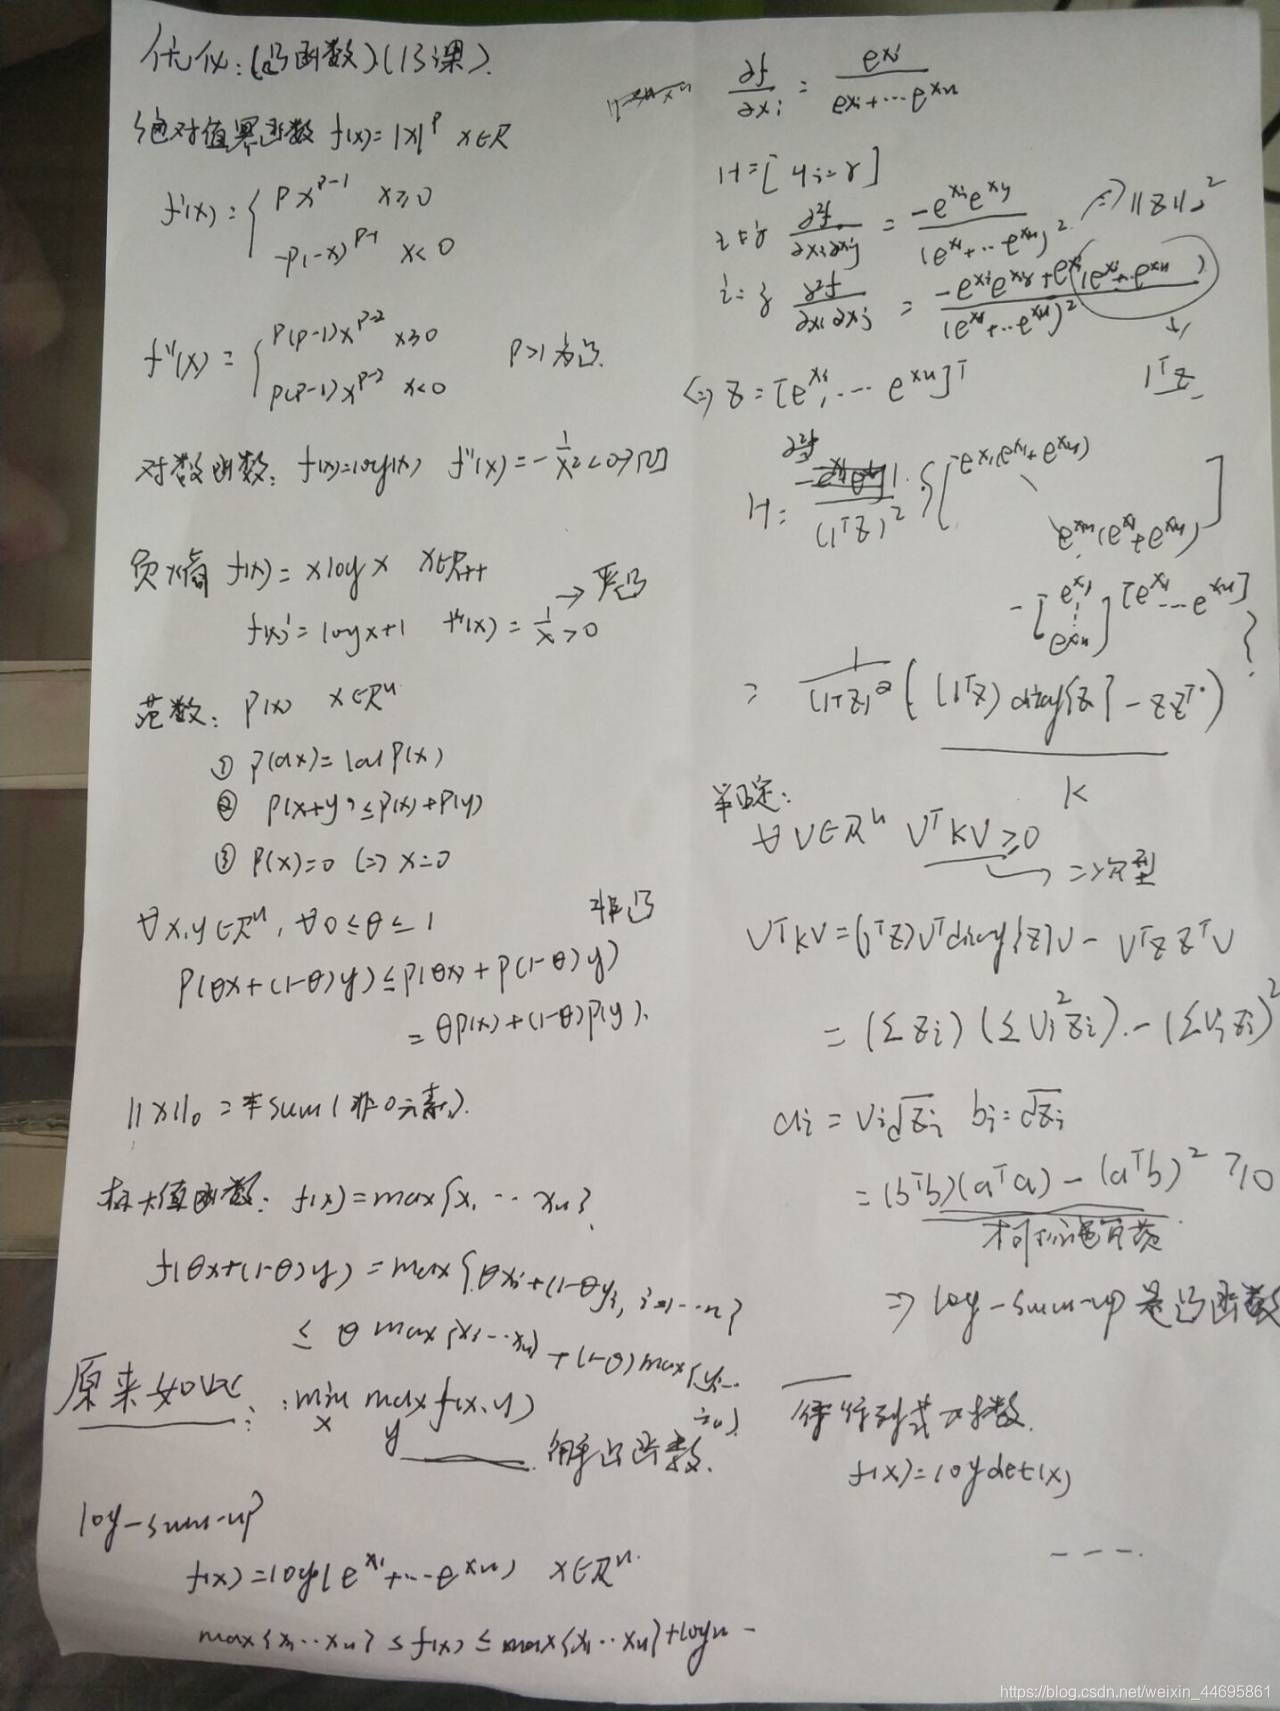 优化:(凸函数)(13课).
绝对值幂函数 f(x)=|x|^p x∈R
f'(x)={ Px^{P-1} x≥0
-P(-x)^{P-1} x<0
f''(x)={ P(P-1)x^{P-2} x≥0
P(P-1)x^{P-2} x<0
P>1为凸.
对数函数: f(x)=log(x) f''(x)=-\frac{1}{x^2}<0→凹
负熵 f(x)=xlogx x∈R_{++}
→严凸
f(x)'=logx+1 f''(x)=\frac{1}{x}>0
范数: P(x) x∈R^n
① P(ax)=|a|P(x)
② P(x+y)≤P(x)+P(y)
③ P(x)=0 ⟺ x=0
∀x,y∈R^n, ∀0≤θ≤1
非凸
P(θx+(1-θ)y)≤P(θx)+P(1-θ)y)
=θP(x)+(1-θ)P(y).
||x||_0 = sum(非0元素).
极大值函数: f(x)=max{x_1 ... x_n}
f(θx+(1-θ)y)=max{θx_i+(1-θy_i, i=1...n}
≤ θ max{x_1...x_n}+(1-θ)max{y_1...
原来如此: min_x max_y f(x,y)
凸函数.
log-sum-up
f(x)=log(e^{x_1}+...e^{x_n}) x∈R^n.
max{x_1...x_n}≤f(x)≤max{x_1...x_n}+logn
\frac{∂f}{∂x_i}=\frac{e^{x_i}}{e^{x_1}+...e^{x_n}}
i≠j \frac{∂^2f}{∂x_i∂x_j}=\frac{-e^{x_i}e^{x_j}}{(e^{x_1}+...e^{x_n})^2}
i=j \frac{∂^2f}{∂x_i∂x_j}=\frac{-e^{x_i}e^{x_j}+e^{x_i}(e^{x_1}+...e^{x_n})}{(e^{x_1}+...e^{x_n})^2}
↓
1^Tz
⟺ z=[e^{x_1},...e^{x_n}]^T
H=\frac{1}{(1^Tz)^2}·{[e^{x_1}(e^{x_1}+e^{x_n})
e^{x_n}(e^{x_1}+e^{x_n})]
-[e^{x_1}⋮e^{x_n}][e^{x_1}...e^{x_n}]}
=\frac{1}{(1^Tz)^2}((1^Tz)diag{z}-zz^T)
K
半正定:
∀V∈R^n V^TKV≥0
→二次型
V^TKV=(1^Tz)V^Tdiag{z}V-V^Tzz^TV
=(Σz_i)(Σv_i^2z_i)-(Σv_iz_i)^2
a_i=v_i√z_i b_i=√z_i
=(b^Tb)(a^Ta)-(a^Tb)^2≥0
⇒log-sum-up是凸函数
行列式对数.
f(x)=logdet(x)
---.
https://blog.csdn.net/weixin_44695861